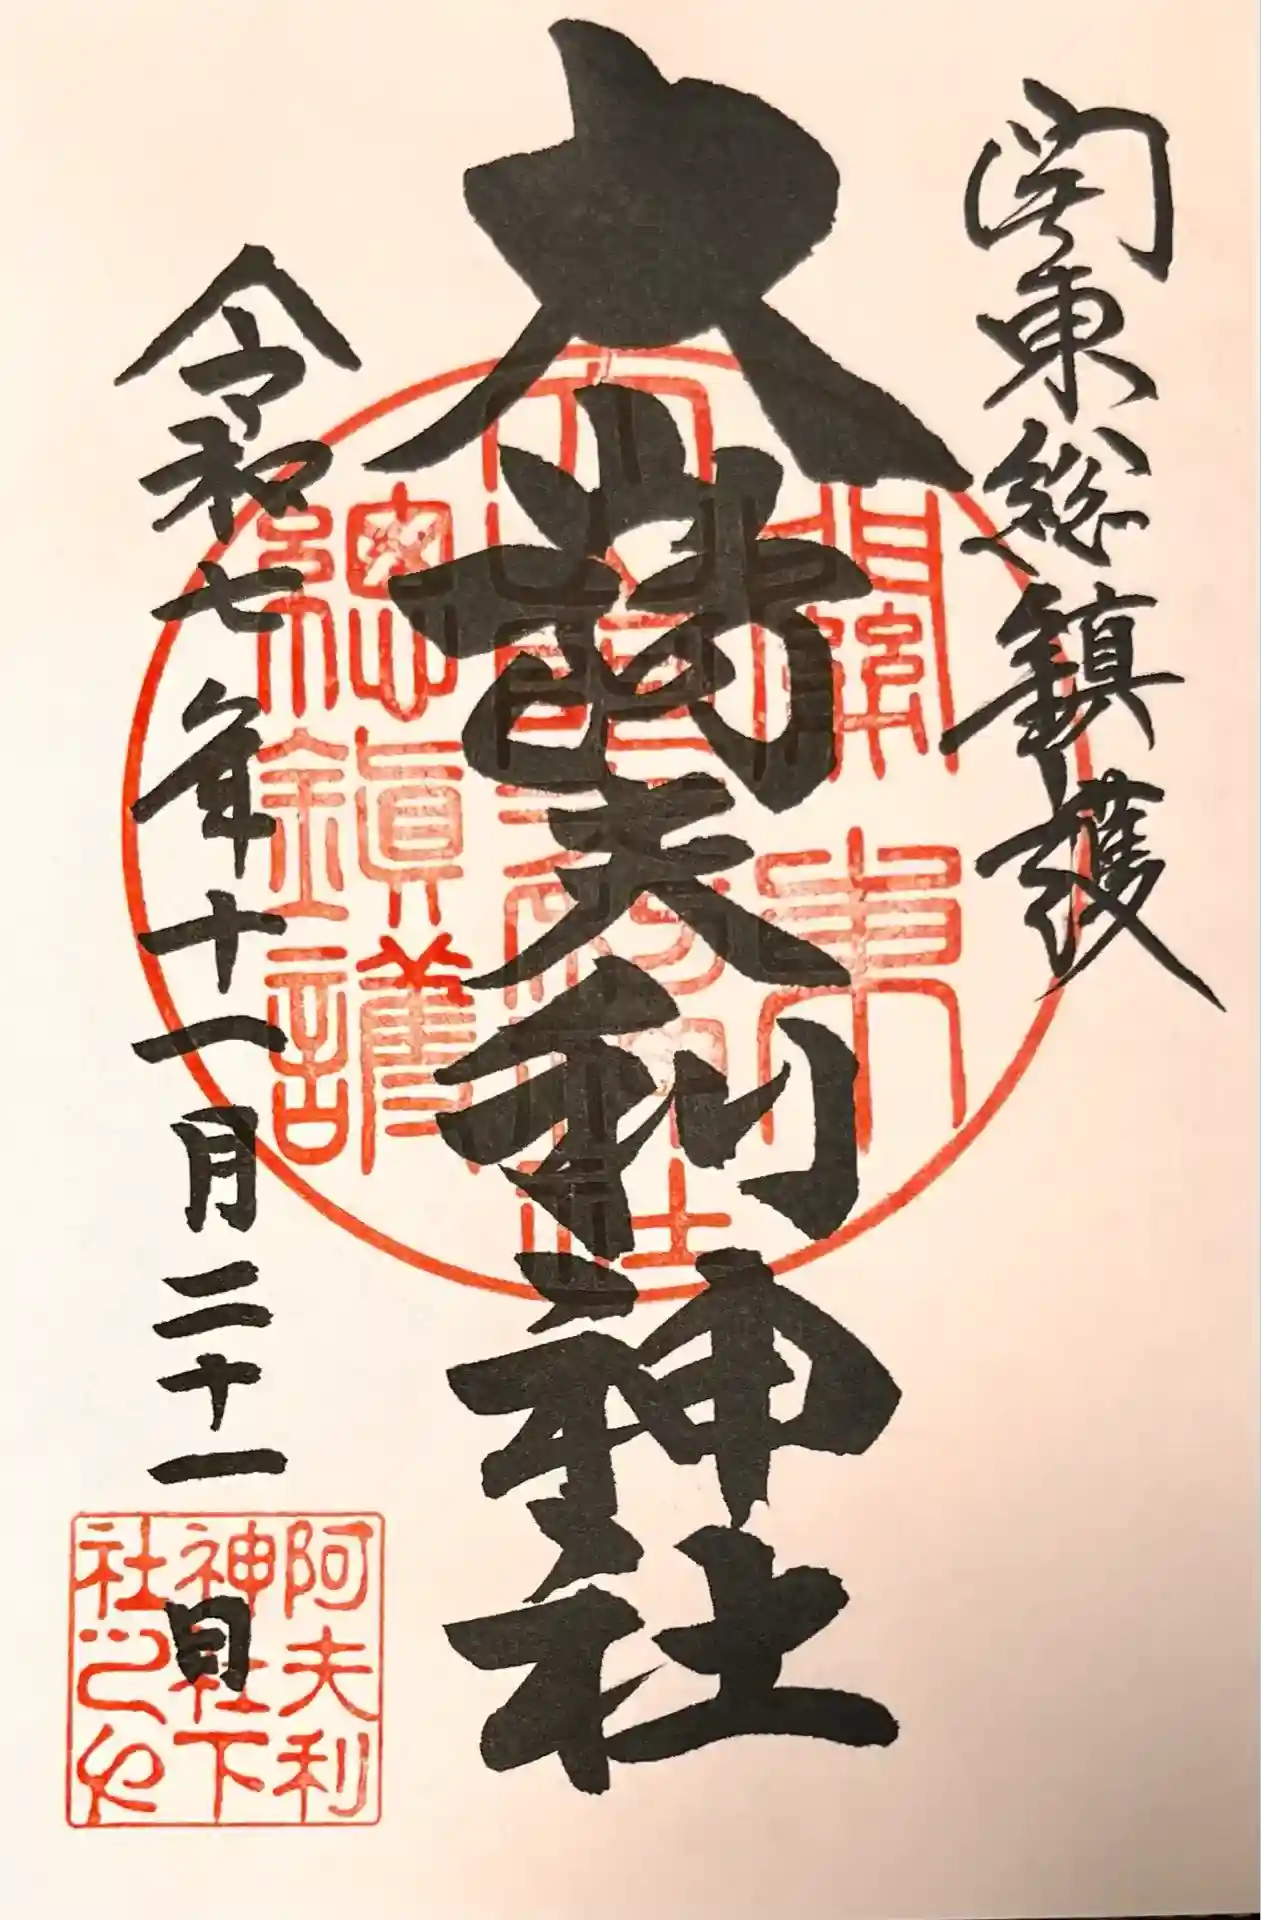 関東総鎮護
大山阿夫利神社
令和七年十一月二十一日
關東
大山阿夫利神社
總鎮護
阿夫利
神社下
社之印